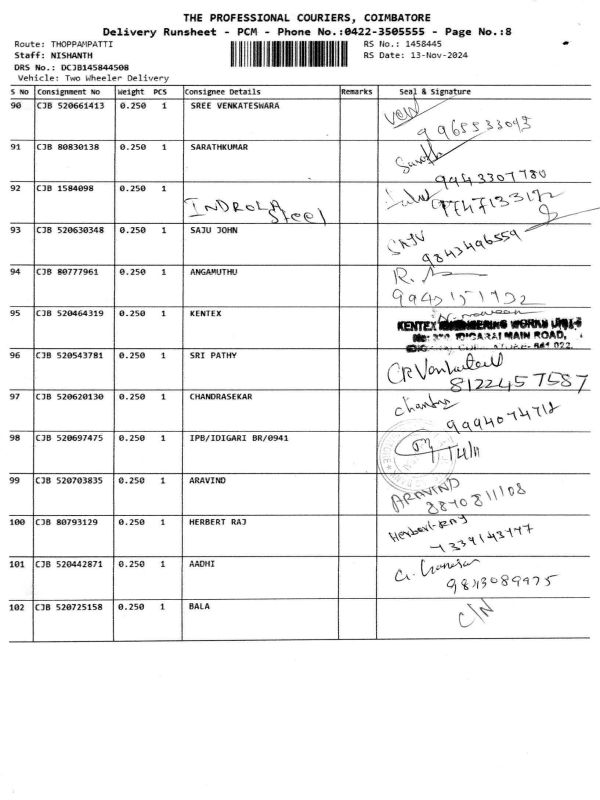 THE PROFESSIONAL COURIERS, COIMBATORE
Delivery Runsheet - PCM - Phone No.:0422-3505555 - Page No.:8
Route: THOPPAMPATTI RS No.: 1458445
Staff: NISHANTH RS Date: 13-Nov-2024
DRS No.: DCJB145844508
Vehicle: Two Wheeler Delivery
S No Consignment No Weight PCS Consignee Details Remarks Seal & Signature
90 CJB 520661413 0.250 1 SREE VENKATESWARA
9965533093
91 CJB 80830138 0.250 1 SARATHKUMAR
9943307780
92 CJB 1584098 0.250 1
INDROLA Steel
93 CJB 520630348 0.250 1 SAJU JOHN SAJU
9843496559
94 CJB 80777961 0.250 1 ANGAMUTHU
95 CJB 520464319 0.250 1 KENTEX
KENTEX ENGINEERING WORKS
IDIGARAI MAIN ROAD,
641 022.
96 CJB 520543781 0.250 1 SRI PATHY
8122457587
97 CJB 520620130 0.250 1 CHANDRASEKAR
9994074712
98 CJB 520697475 0.250 1 IPB/IDIGARI BR/0941
14/11
99 CJB 520703835 0.250 1 ARAVIND ARAVIND
8870811108
100 CJB 80793129 0.250 1 HERBERT RAJ Herbert-Raj
101 CJB 520442871 0.250 1 AADHI
9843089975
102 CJB 520725158 0.250 1 BALA C/N